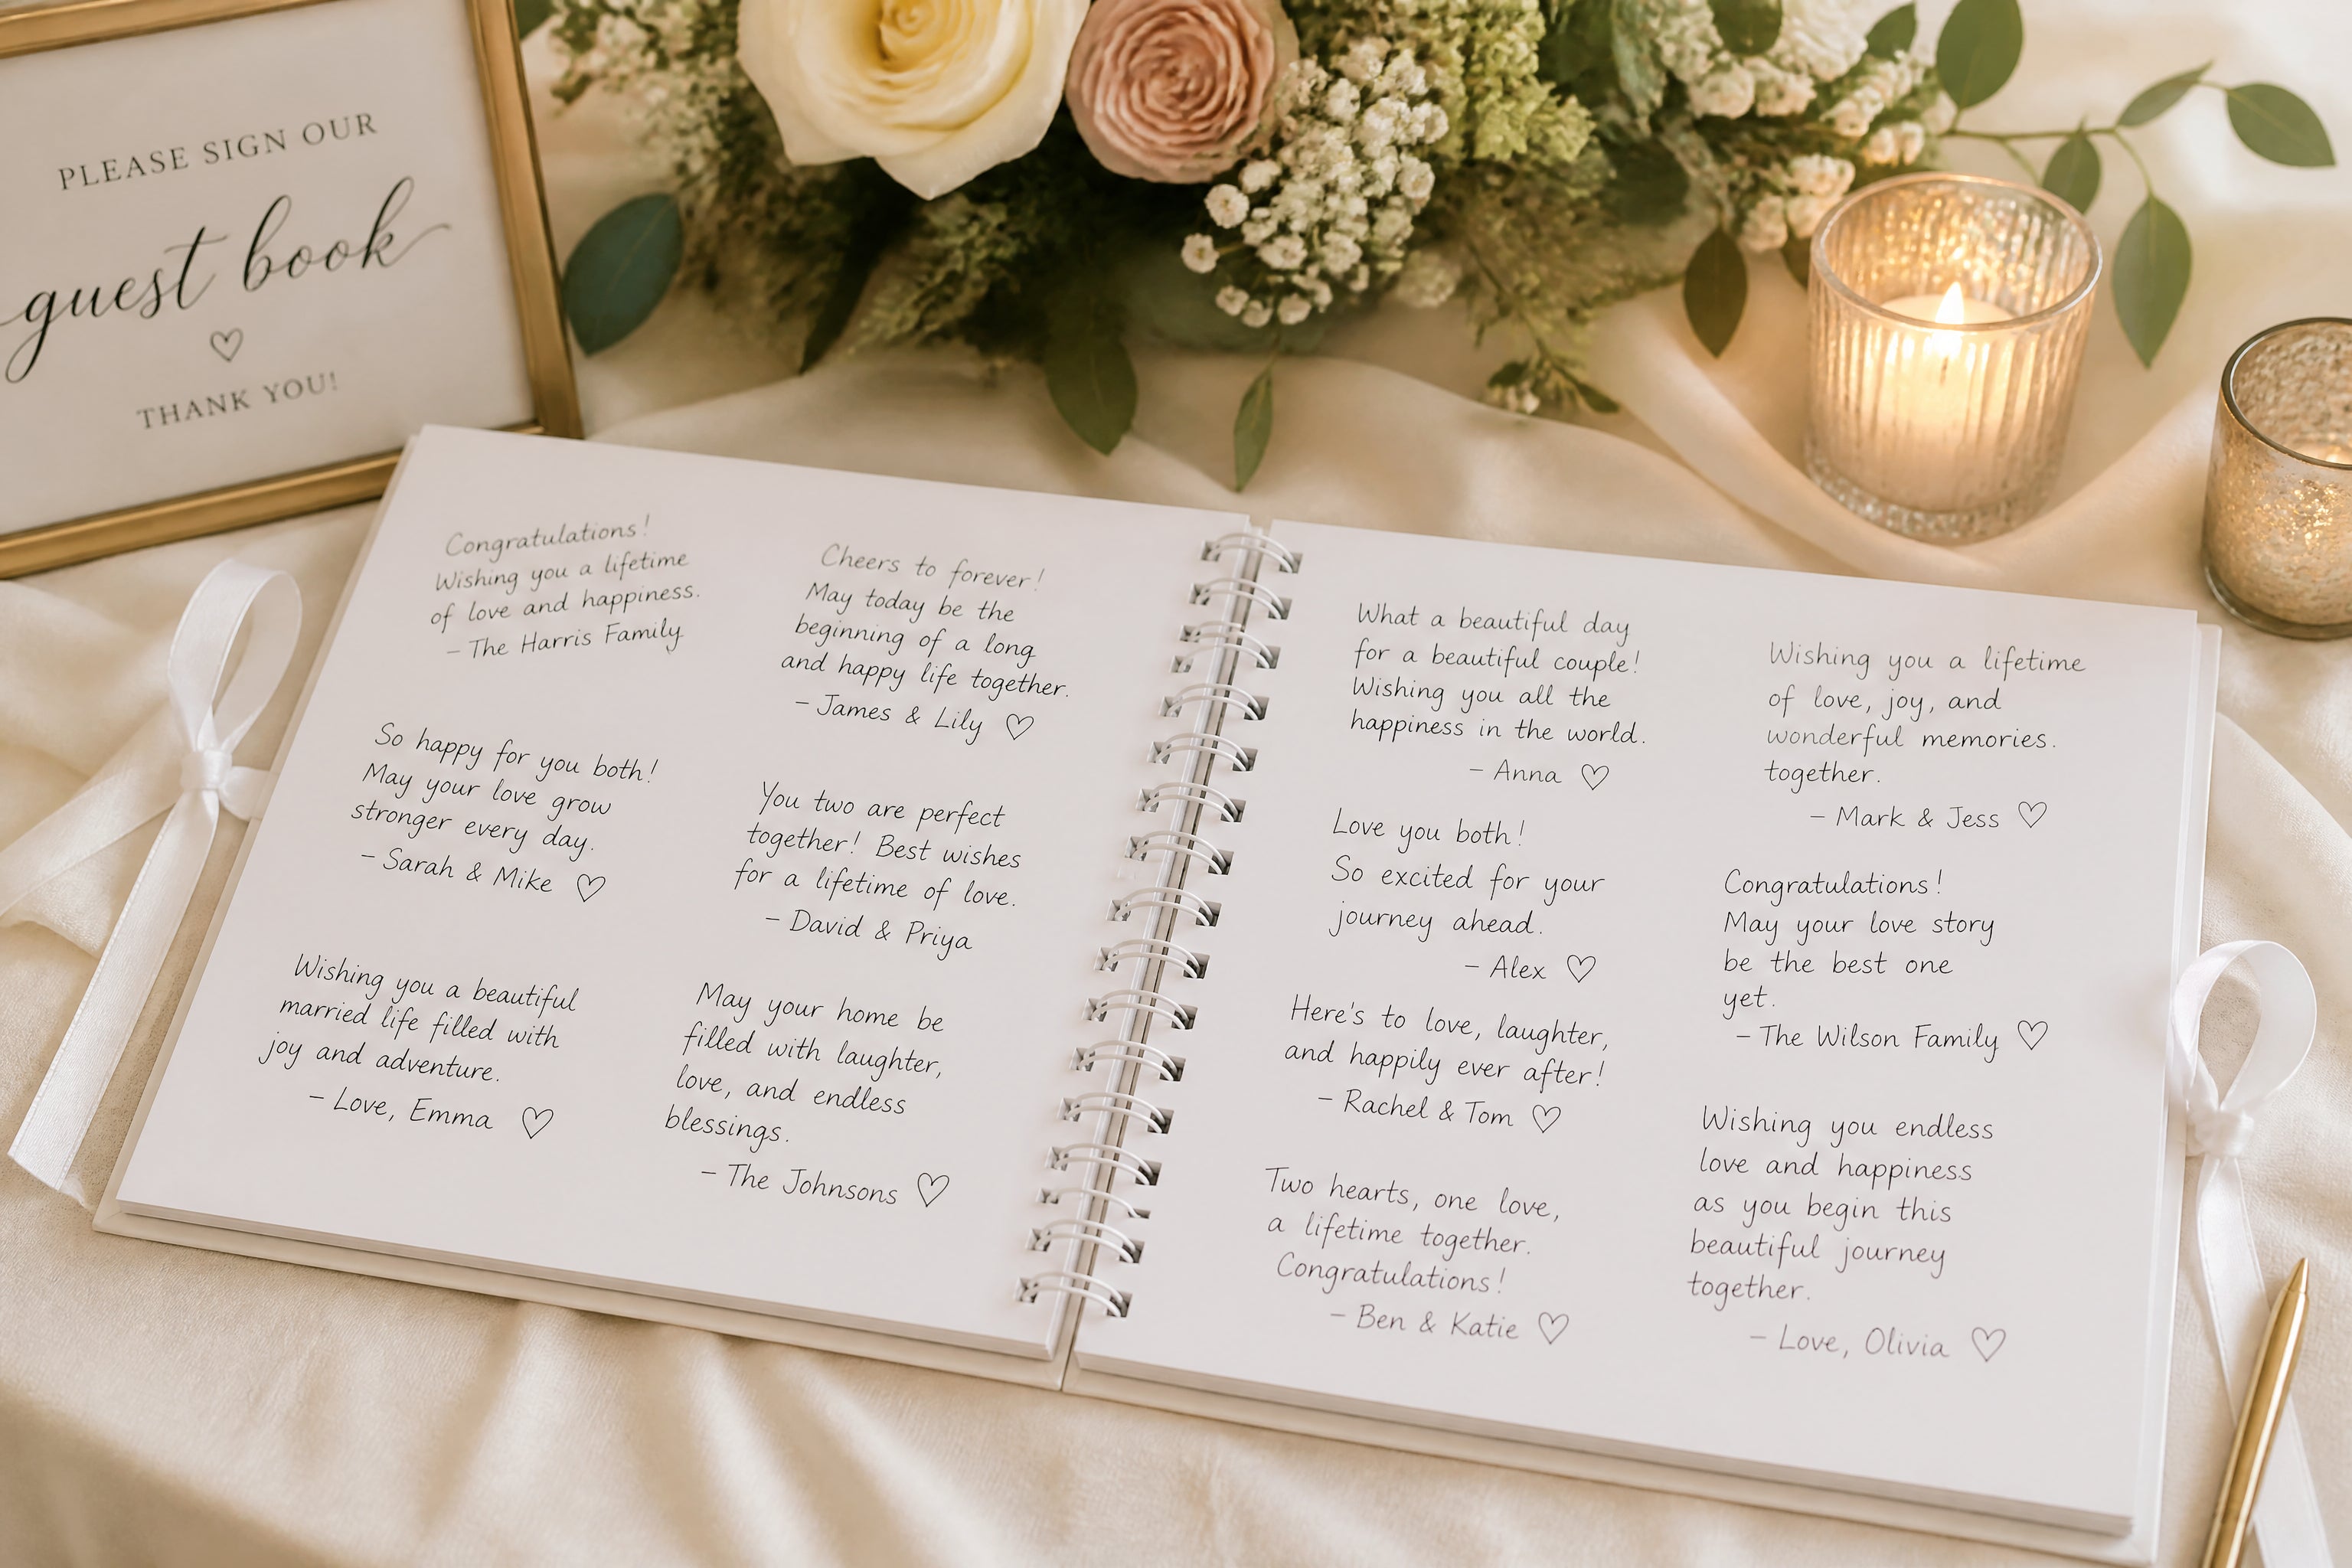 PLEASE SIGN OUR
guest book
THANK YOU!
Congratulations!
Wishing you a lifetime
of love and happiness.
– The Harris Family
So happy for you both!
May your love grow
stronger every day.
– Sarah & Mike ♡
Wishing you a beautiful
married life filled with
joy and adventure.
– Love, Emma ♡
Cheers to forever!
May today be the
beginning of a long
and happy life together.
– James & Lily ♡
You two are perfect
together! Best wishes
for a lifetime of love.
– David & Priya
May your home be
filled with laughter,
love, and endless
blessings.
– The Johnsons ♡
What a beautiful day
for a beautiful couple!
Wishing you all the
happiness in the world.
– Anna ♡
Love you both!
So excited for your
journey ahead.
– Alex ♡
Here's to love, laughter,
and happily ever after!
– Rachel & Tom ♡
Two hearts, one love,
a lifetime together.
Congratulations!
– Ben & Katie ♡
Wishing you a lifetime
of love, joy, and
wonderful memories.
together.
– Mark & Jess ♡
Congratulations!
May your love story
be the best one
yet.
– The Wilson Family ♡
Wishing you endless
love and happiness
as you begin this
beautiful journey
together.
– Love, Olivia ♡